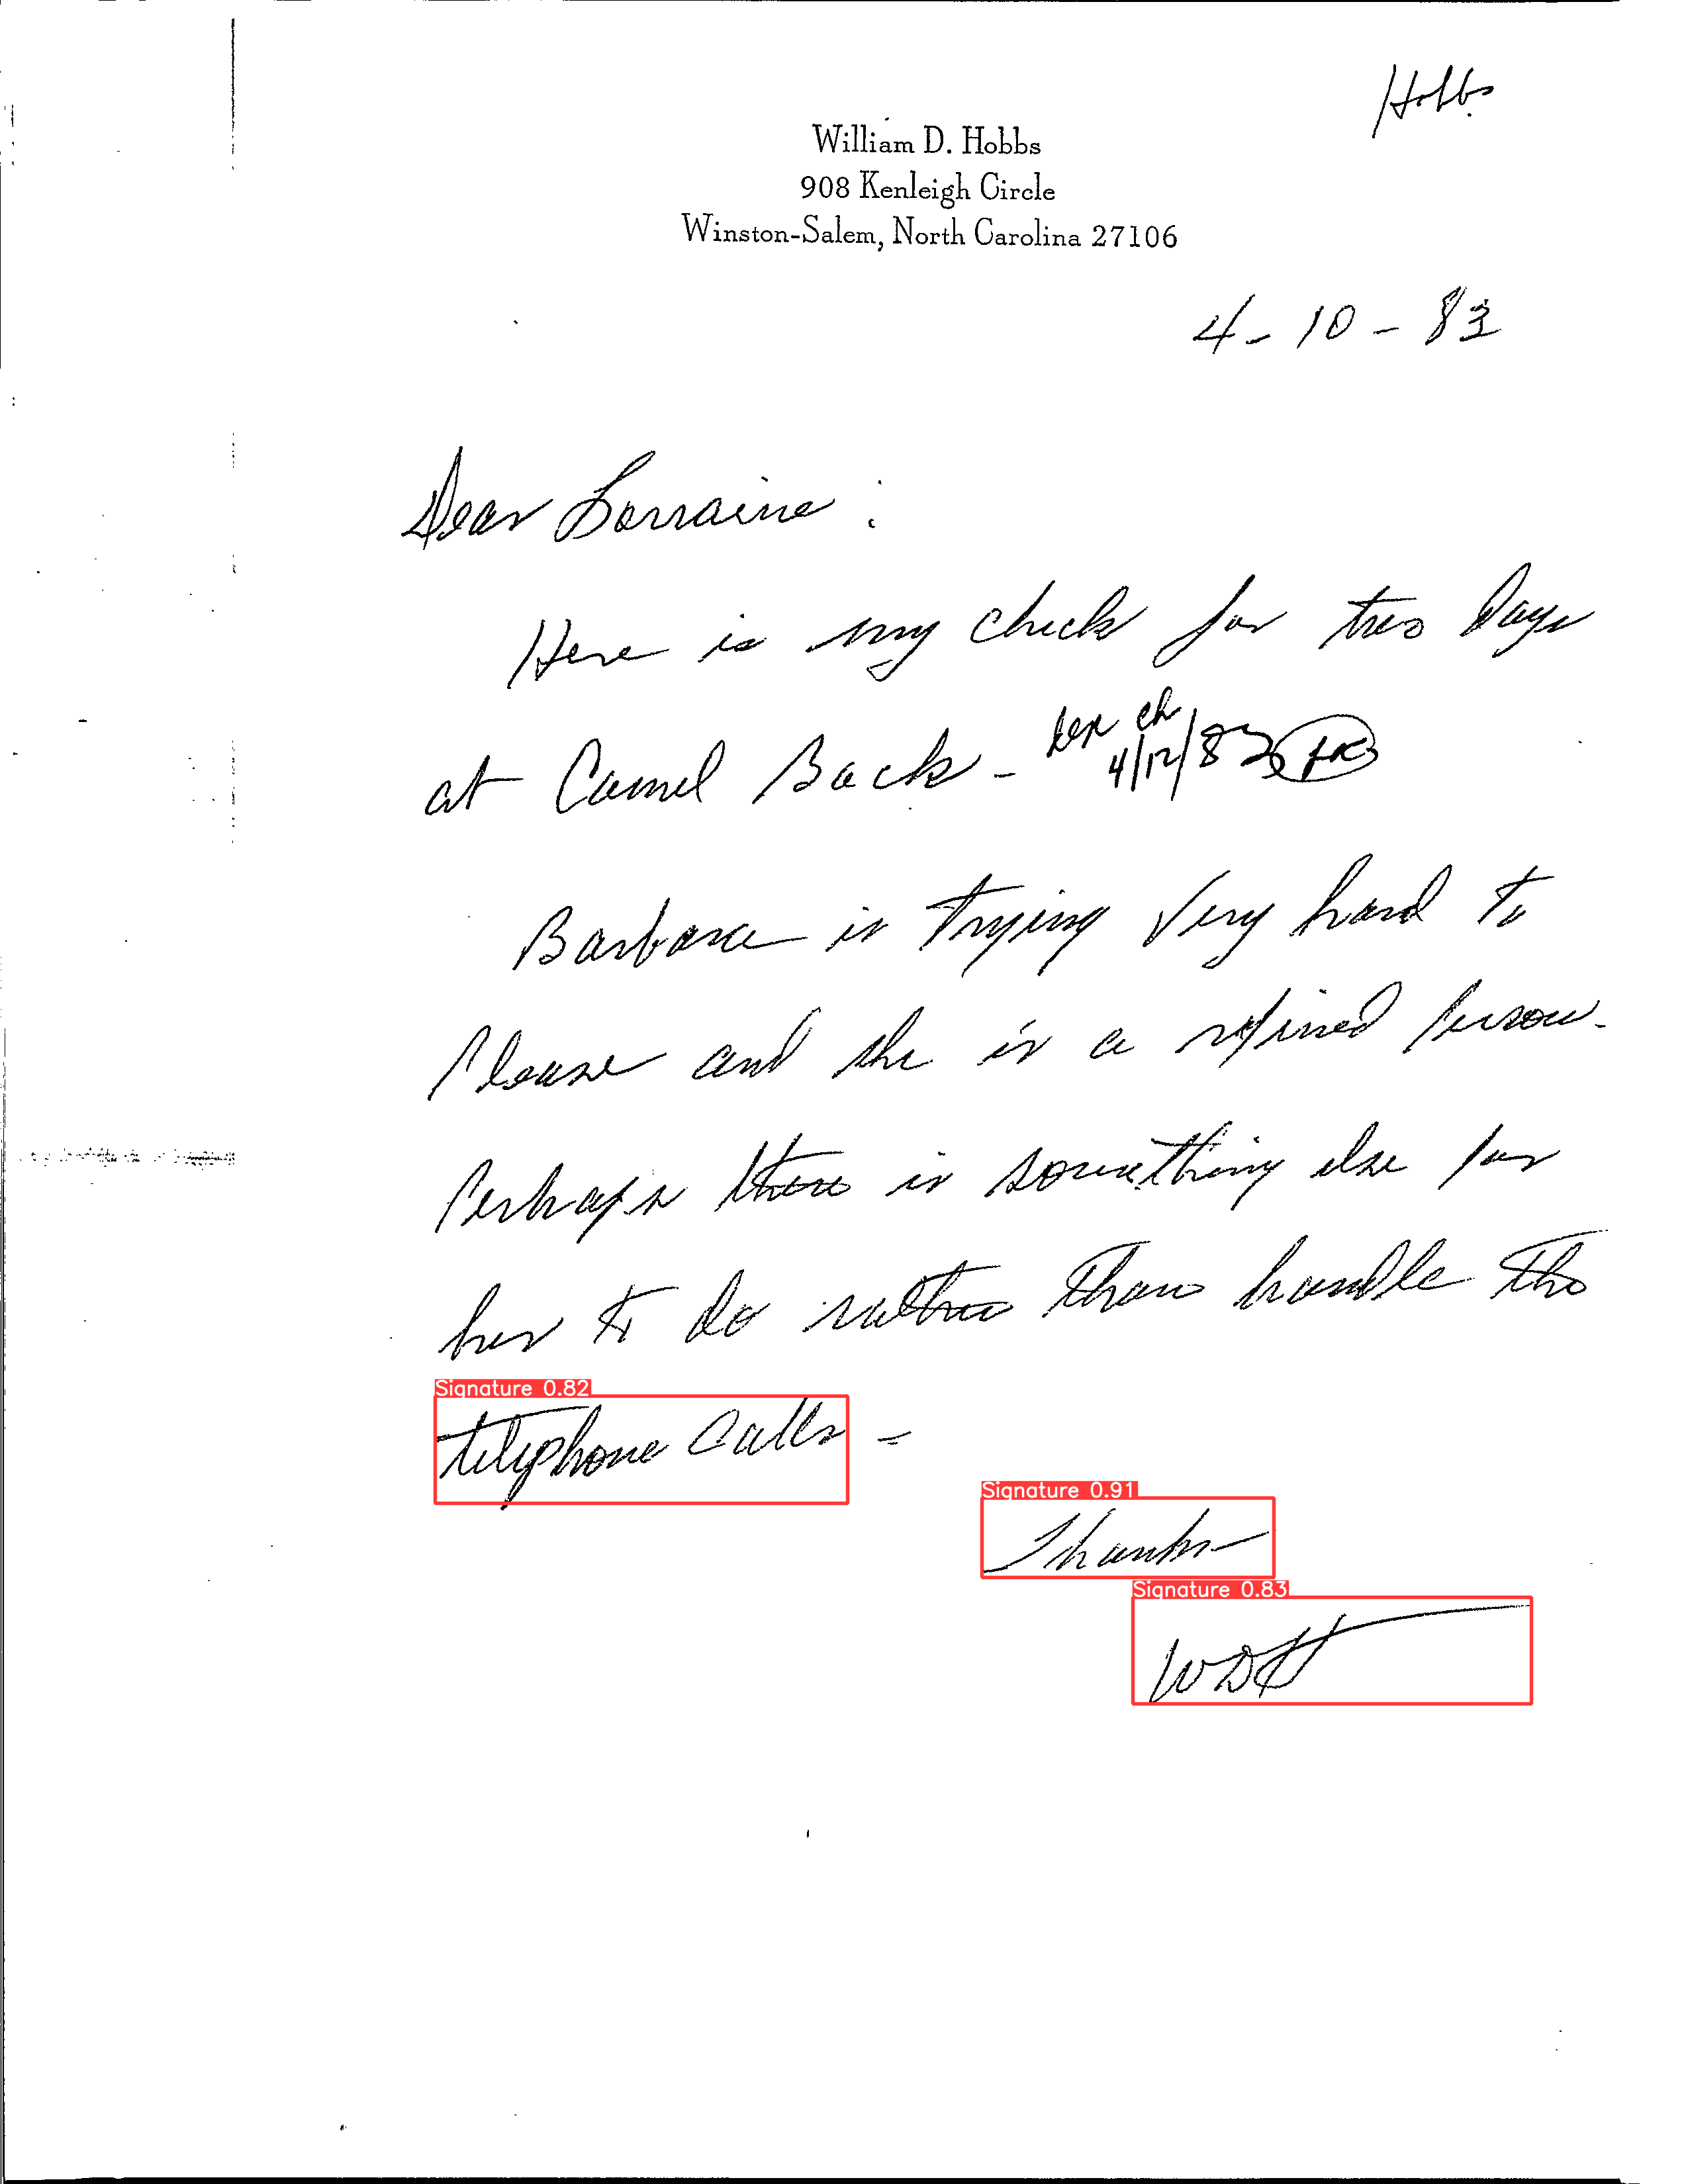 Hobbs
William D. Hobbs
908 Kenleigh Circle
Winston-Salem, North Carolina 27106
4-10-83
Dear Lorraine:
Here is my check for two days
at Camel Back - ch
4/12/83
Barbara is trying very hard to
please and she is a refined person.
Perhaps there is something else for
her to do rather than handle the
Signature 0.82
telephone calls -
Signature 0.91
Thanks
Signature 0.83
WDH